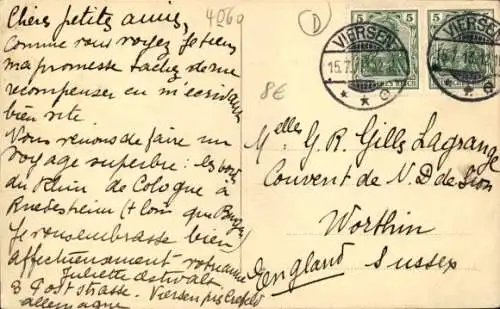 Chères petites amies,
Comme vous voyez je tiens
ma promesse tachez de me
recompenser en m'écrivant
bien vite.
Vous venons de faire un
voyage superbe: les bords
du Rhin de Cologne à
Ruedesheim (+ loin que Bingen)
Je vous embrasse bien
affectueusement votre amie
Juliette
3 Poststrasse. Viersen près Crefeld
allemagne
4060
D
8€
5 5
VIERSEN
15.7.
Melles G. R. Gills Lagrange
Couvent de N. D de Sion
Worthin
England Sussex